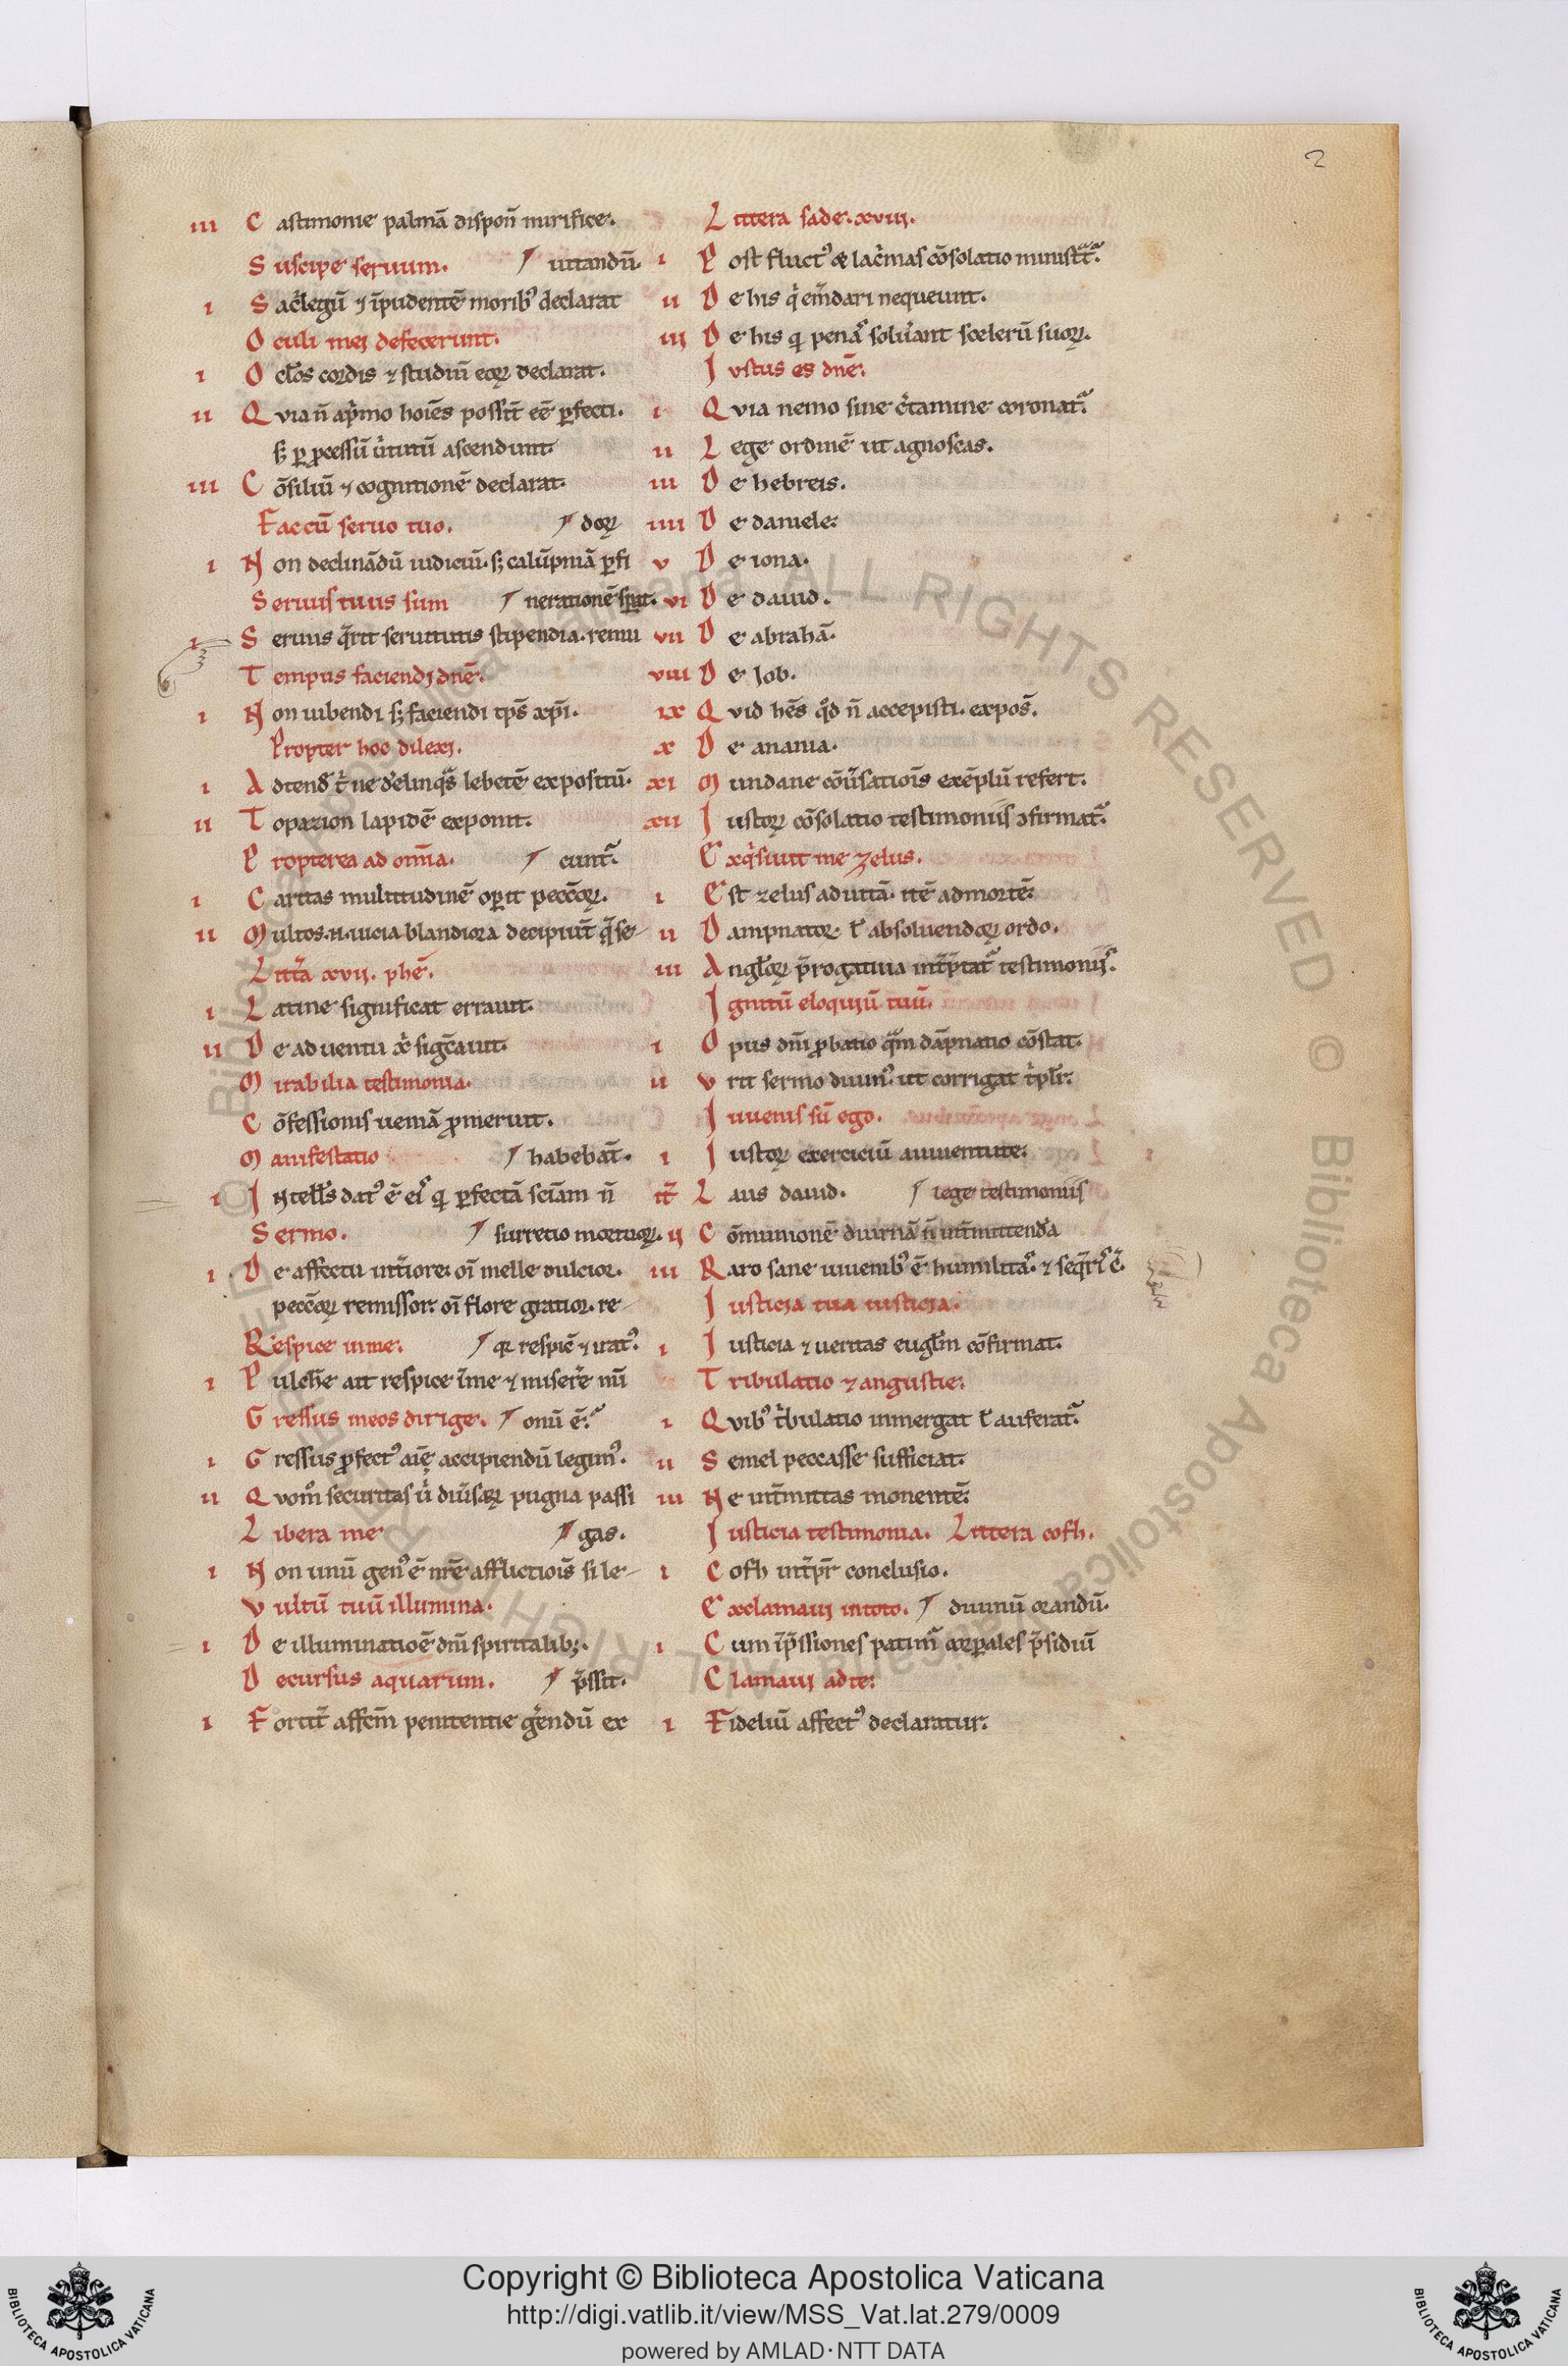 2
iii Castimonie palmā dispoñ mirifice.
Suscipe seruum. uitandū.
i Sac̓legū ⁊ īpudentē moribꝰ declarat
Oculi mei defecerunt.
i Ocłos cordis ⁊ studiū eoꝝ declarat.
ii Quia ñ ap̓mo hoīes possūt eē ꝑfecti.
sꝫ ꝑ ꝓcessū ụ̓tutū ascendunt.
iii Cōsiliū ⁊ cognitionē declarat.
Fac cū seruo tuo. doꝝ
i Non declinādū iudiciū. sꝫ calūpniā ꝑfi
Seruus tuus sum nerationē spat.
i Seruus q̄rit seruitutis stipendia. remu
Tempus faciendi dn̄e.
i Non iubendi sꝫ faciendi tp̄s xp̄i.
Propter hoc dilexi.
i Adtend̓ t̓ ne delinq̓s lebetē expositū.
ii Topazion lapidē exponit.
Propterea ad om̄ia. cuntᷣ.
i Caritas multitudinē oꝑit pecc̄oꝝ.
ii Multos .n. iucia blandiora decipiūt q̄ se-
Litt̄a xvii. phē.
i Latine significat errauit.
ii De aduentu xp̓ sigc̄auit.
Mirabilia testimonia.
Cōfessionis ueniā ꝓmeruit.
Manifestatio habebāt.
i Intell̄s datꝰ ē eiˢ qi ꝑfectā sciam ñ
Sermo. surretio mortuoꝝ.
i De affectu int̄iore oī melle dulcior.
pecc̄oꝝ remissor. oī flore gratior. re-
Respice in me. qr respic̄ ⁊ iratꝰ.
i Pulchre ait respice īme ⁊ misere mī
Gressus meos dirige. onū ē.
i Gressus ꝓfectꝰ aīę accipiendū legimꝰ.
ii Quom̊ securitas ụ̓ diụ̓saꝝ pugna passi
Libera me gas.
i Non unū genꝰ ē nr̄e afflictiōis si le-
Vultū tuū illumina.
i De illuminatiōe dn̄i spiritalibꝫ.
Decursus aquarum. p̄ssit.
i Fortit̄ affcm̄ penitentie gerendū ex
Littera sade. xviii.
i Post fluctꝰ & lac̓mas cōsolatio ministrᷓtᷣ.
ii De his q̓ em̄dari nequeunt.
iii De his qi penaˢ soluerant scelerū suoꝝ.
Iustus es dn̄e.
i Quia nemo sine c̓tamine coronatᷣ
ii Lege ordinē ut agnoscas.
iii De hebreis.
iiii De daniele.
v De iona.
vi De dauid.
vii De abrahā.
viii De Iob.
ix Quid hēs qd̓ ñ accepisti. expos̄.
x De anania.
xi Mundane cōụ̓satiōis exēplū refert.
xii Iustoꝝ cōsolatio testimoniis ꝯfirmatᷣ.
Exq̓siuit me zelus.
i Est zelus ad uitā. itē ad mortē.
ii Dampnatoꝝ. ł absoluendoꝝ ordo.
iii Angłoꝝ p̄rogatiua int̄p̄tatᷣ testimoniis.
Ignitū eloquiū tuū.
i Opus dn̄i ꝓbatio qᷓm dāpnatio cōstat.
ii Vrit sermo diuinꝰ ut corrigat t̓plr̄.
Iuuenis sū ego.
i Iustoꝝ exerciciū a iuuentute.
Laus dauid. lege testimoniis
ii Cōmunionē diuinā n̄ int̄mittenda
iii Raro sane iuuenibꝰ ē humilitaˢ. ⁊ seq̄ri c̄.
Iusticia tua iusticia.
i Iusticia ⁊ ueritas eugłm cōfirmat.
Tribulatio ⁊ angustie.
i Quibꝰ t̓bulatio inmergat ł auferatᷣ.
ii Semel peccasse sufficiat.
iii Ne int̄mittas monentē.
Iusticia testimonia. Littera cofh.
i Cofh int̄pr̄ conclusio.
Exclamaui in toto. diuinū orandū.
i Cum īp̄ssiones patimᷣ corꝑales p̄sidiū
Clamaui ad te.
i Fideliū affectꝰ declaratur.
Copyright © Biblioteca Apostolica Vaticana
http://digi.vatlib.it/view/MSS_Vat.lat.279/0009
powered by AMLAD·NTT DATA